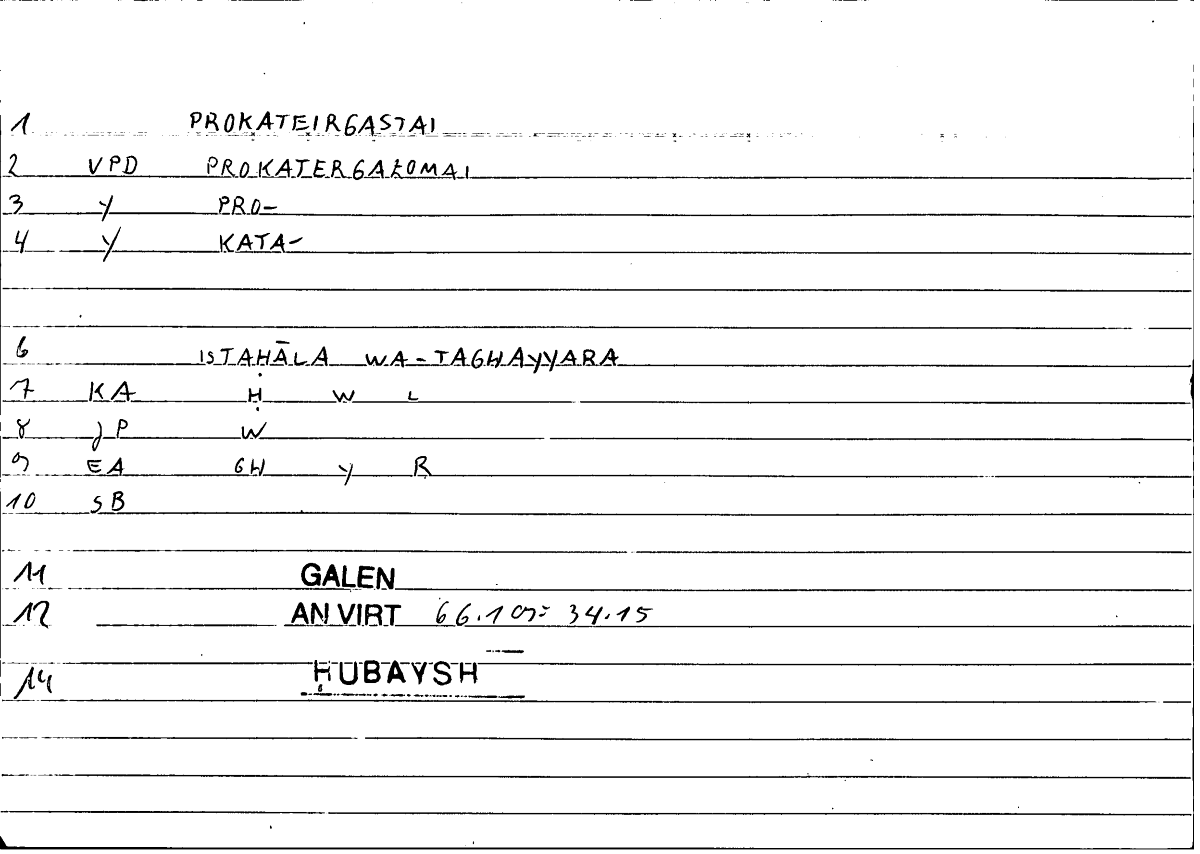 1 PROKATEIRGASTAI
2 VPD PROKATERGAZOMAI
3 Y PRO-
4 Y KATA-
6 ISTAḤĀLA WA-TAGHAYYARA
7 KA Ḥ W L
8 JP W
9 EA GH Y R
10 SB
11 GALEN
12 AN VIRT 66.10 = 34.15
14 ḤUBAYSH